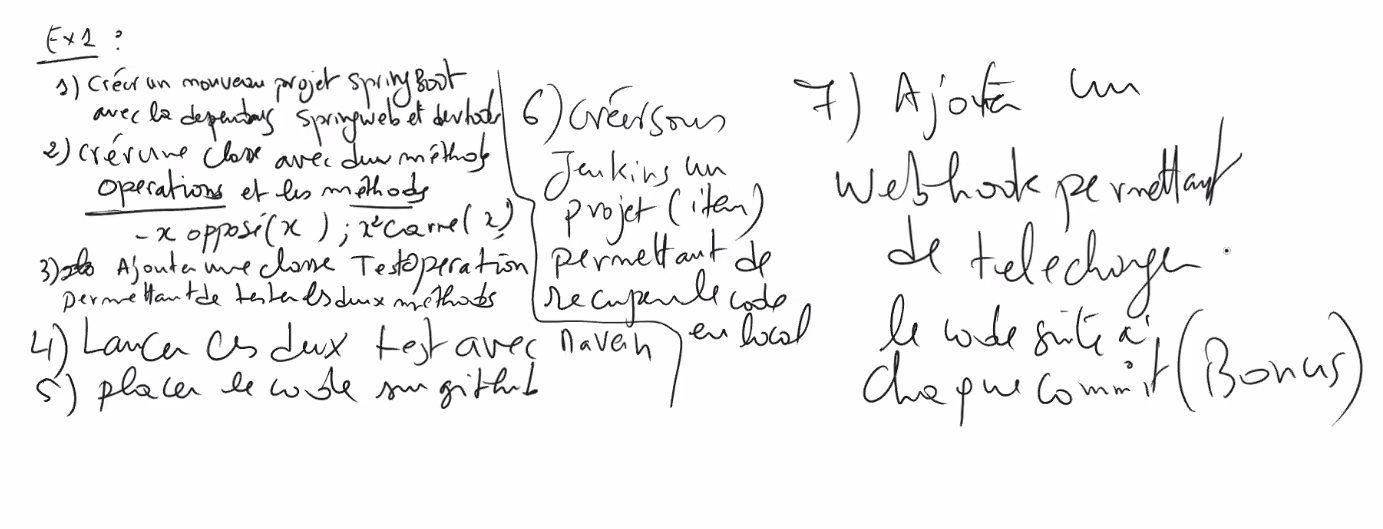 Ex1 :
1) Créer un nouveau projet SpringBoot
avec les dependences Springweb et devtools
2) Créer une classe avec deux méthodes
Operations et les méthodes
-x opposé(x) ; x² carre(x)
3) Ajouter une classe TestOperation
permettant de tester les deux méthodes
4) Lancer ces deux test avec maven
5) placer le code sur github
6) Créer sous
Jenkins un
projet (item)
permettant de
recuperer le code
en local
7) Ajouter un
webhook permettant
de telecharger
le code suite à
chaque commit (Bonus)